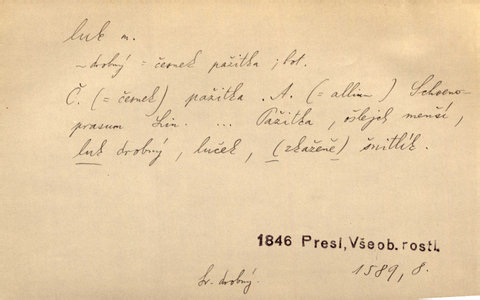 luk m.
~ drobný = černek pažitka ; bot.
Č. (= černek) pažitka . A. (= allium) Schoeno-
prasum Lin. ... Pažitka, ošlejch menší,
luk drobný, luček, (zkaženě) šnitlík.
1846 Presl, Všeob. rostl.
1589, 8.
Sr. drobný.